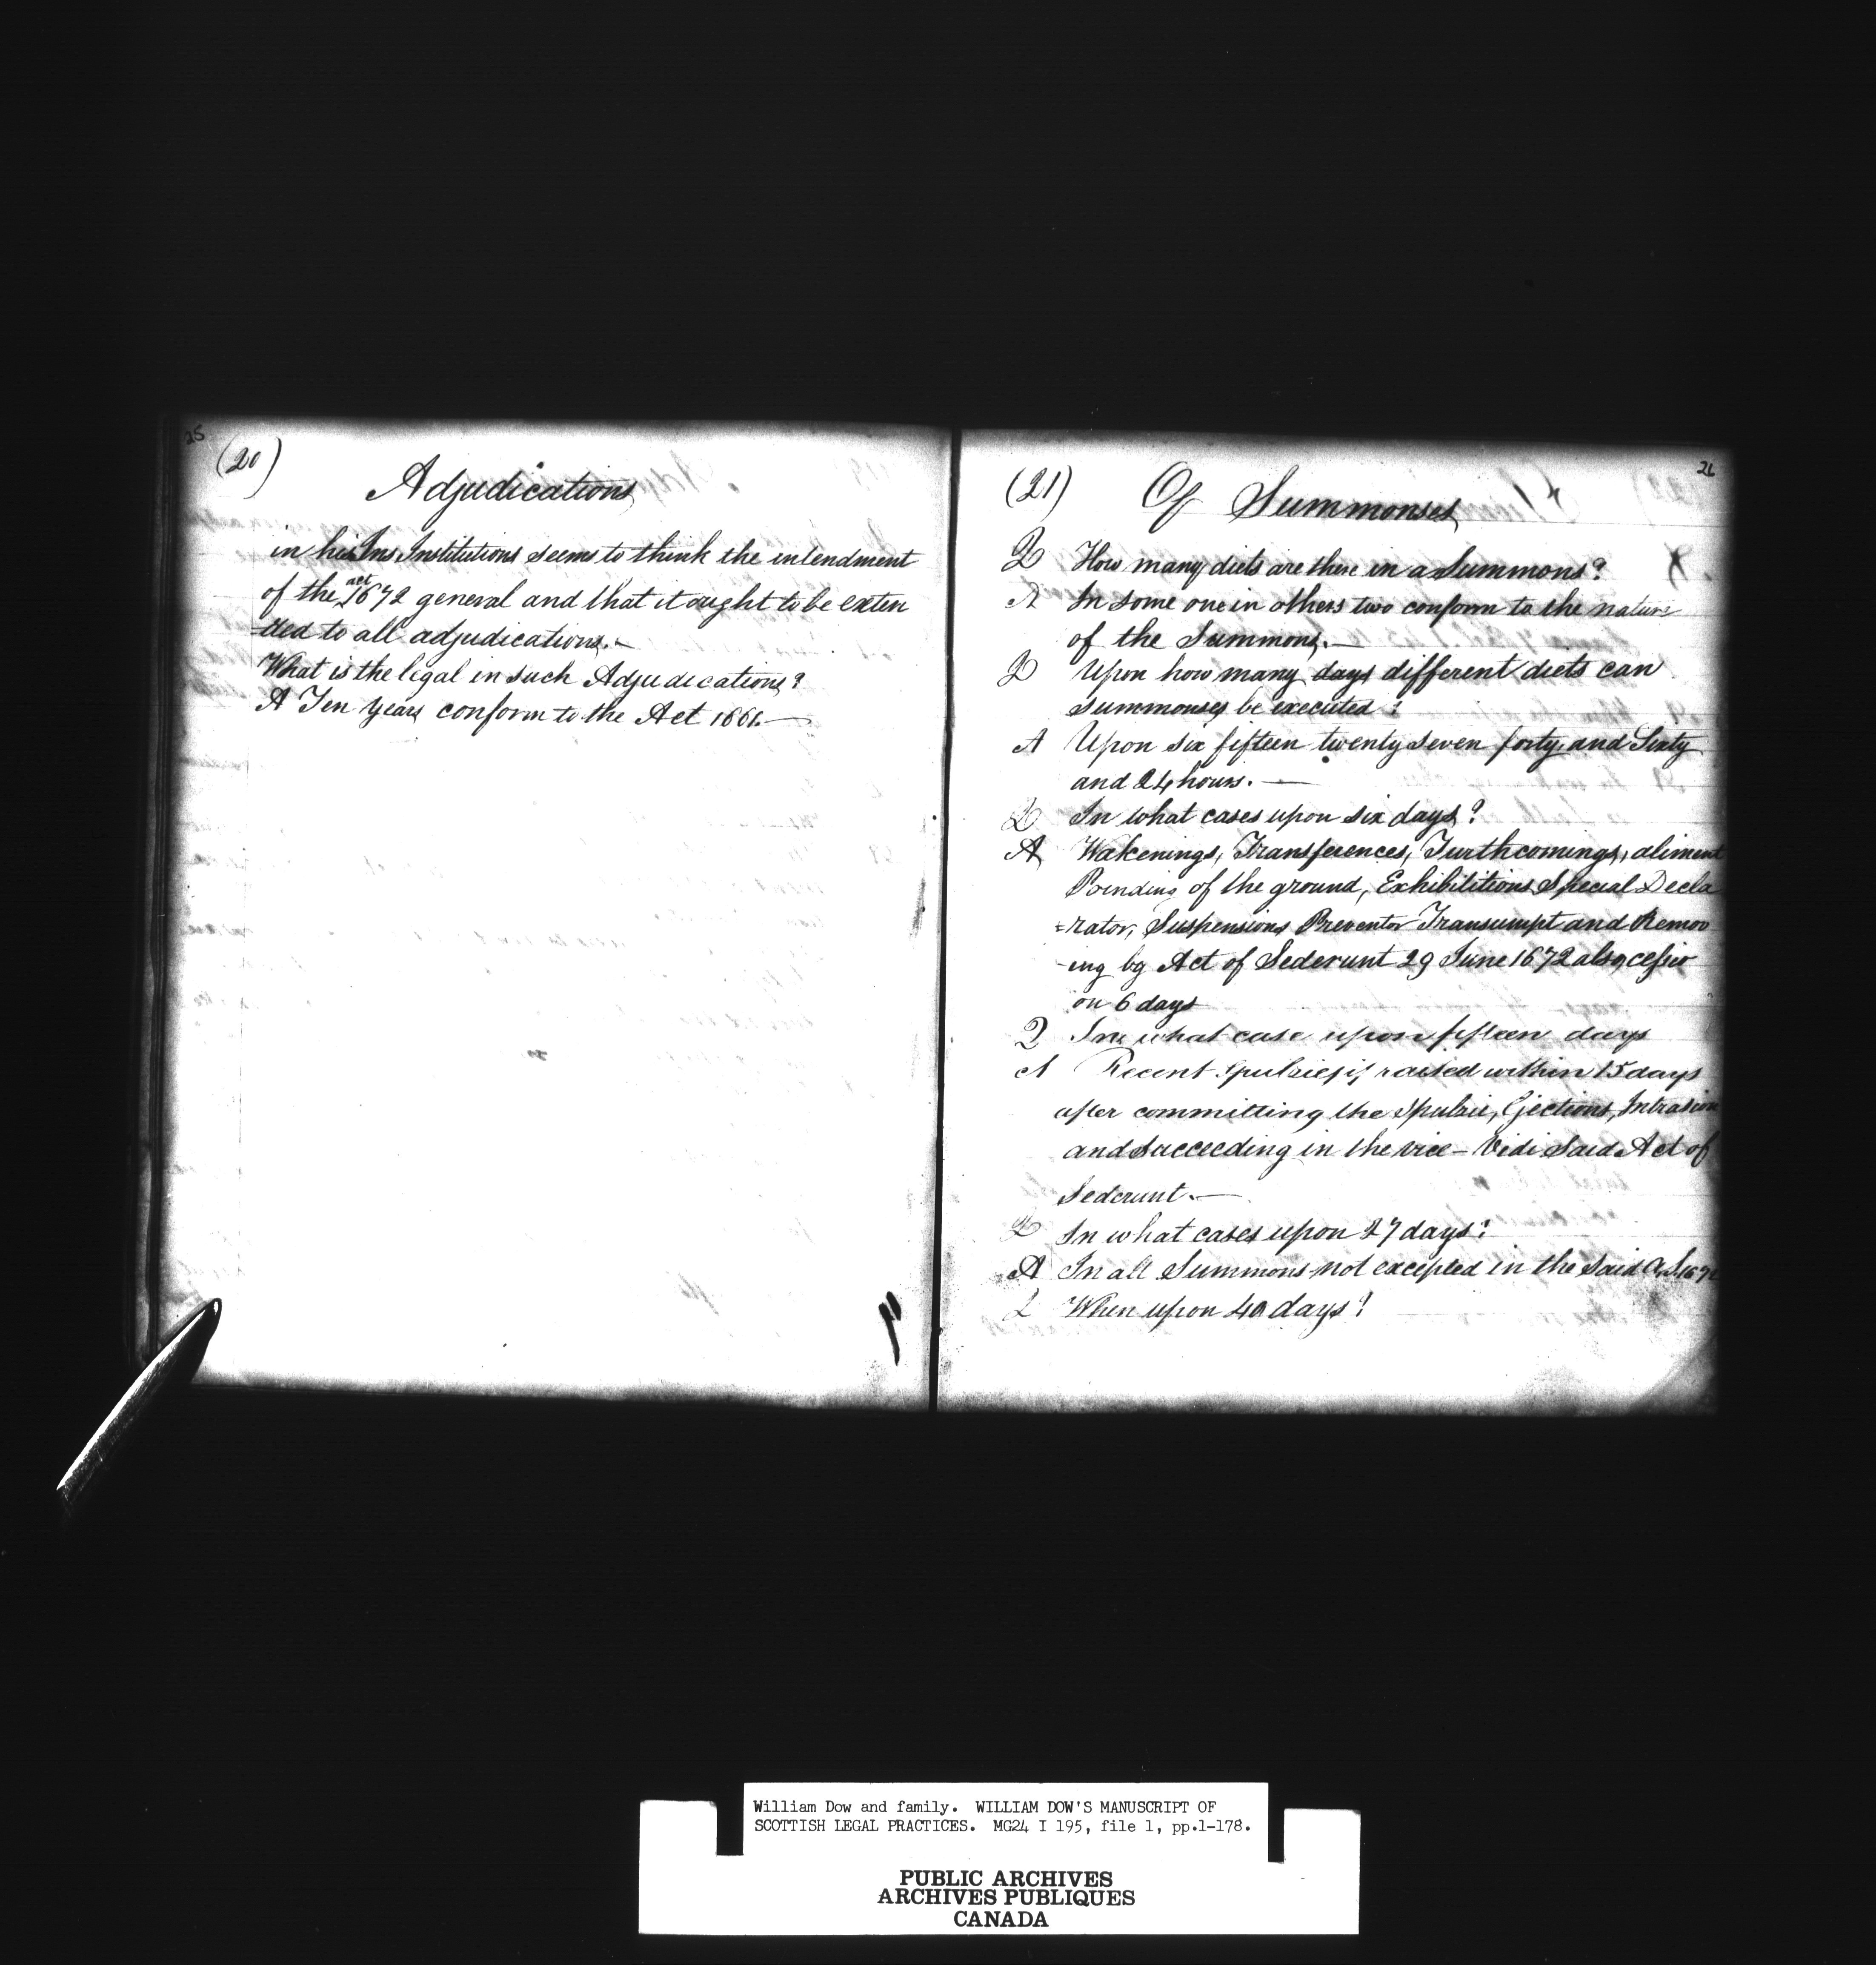 25
(20)
Adjudications
in his Ins Institutions seems to think the intendment
of the act 1672 general and that it ought to be exten
-ded to all adjudications.—
What is the legal in such Adjudications?
A Ten years conform to the Act 1661.—
26
(21) Of Summonses
Q How many diets are there in a Summons?
A In some one in others two conform to the nature
of the Summons.—
Q Upon how many days different diets can
Summonses be executed?
A Upon six fifteen twenty seven forty and Sixty
and 24 hours.—
Q In what cases upon six days?
A Wakenings, Transferences, Furthcomings, aliment
Poinding of the ground, Exhibitions Special Decla
-rator, Suspensions Preventor Transumpt and Remov
-ing by Act of Sederunt 29 June 1672 also cessio
on 6 days
Q In what case upon fifteen days
A Recent Spulzies if raised within 15 days
after committing the Spulzie, Ejections, Intrusion
and Succeeding in the vice – Vide Said Act of
Sederunt.—
Q In what cases upon 27 days?
A In all Summons not excepted in the Said A.S. 1672
Q When upon 40 days?
William Dow and family. WILLIAM DOW'S MANUSCRIPT OF
SCOTTISH LEGAL PRACTICES. MG24 I 195, file 1, pp.1-178.
PUBLIC ARCHIVES
ARCHIVES PUBLIQUES
CANADA